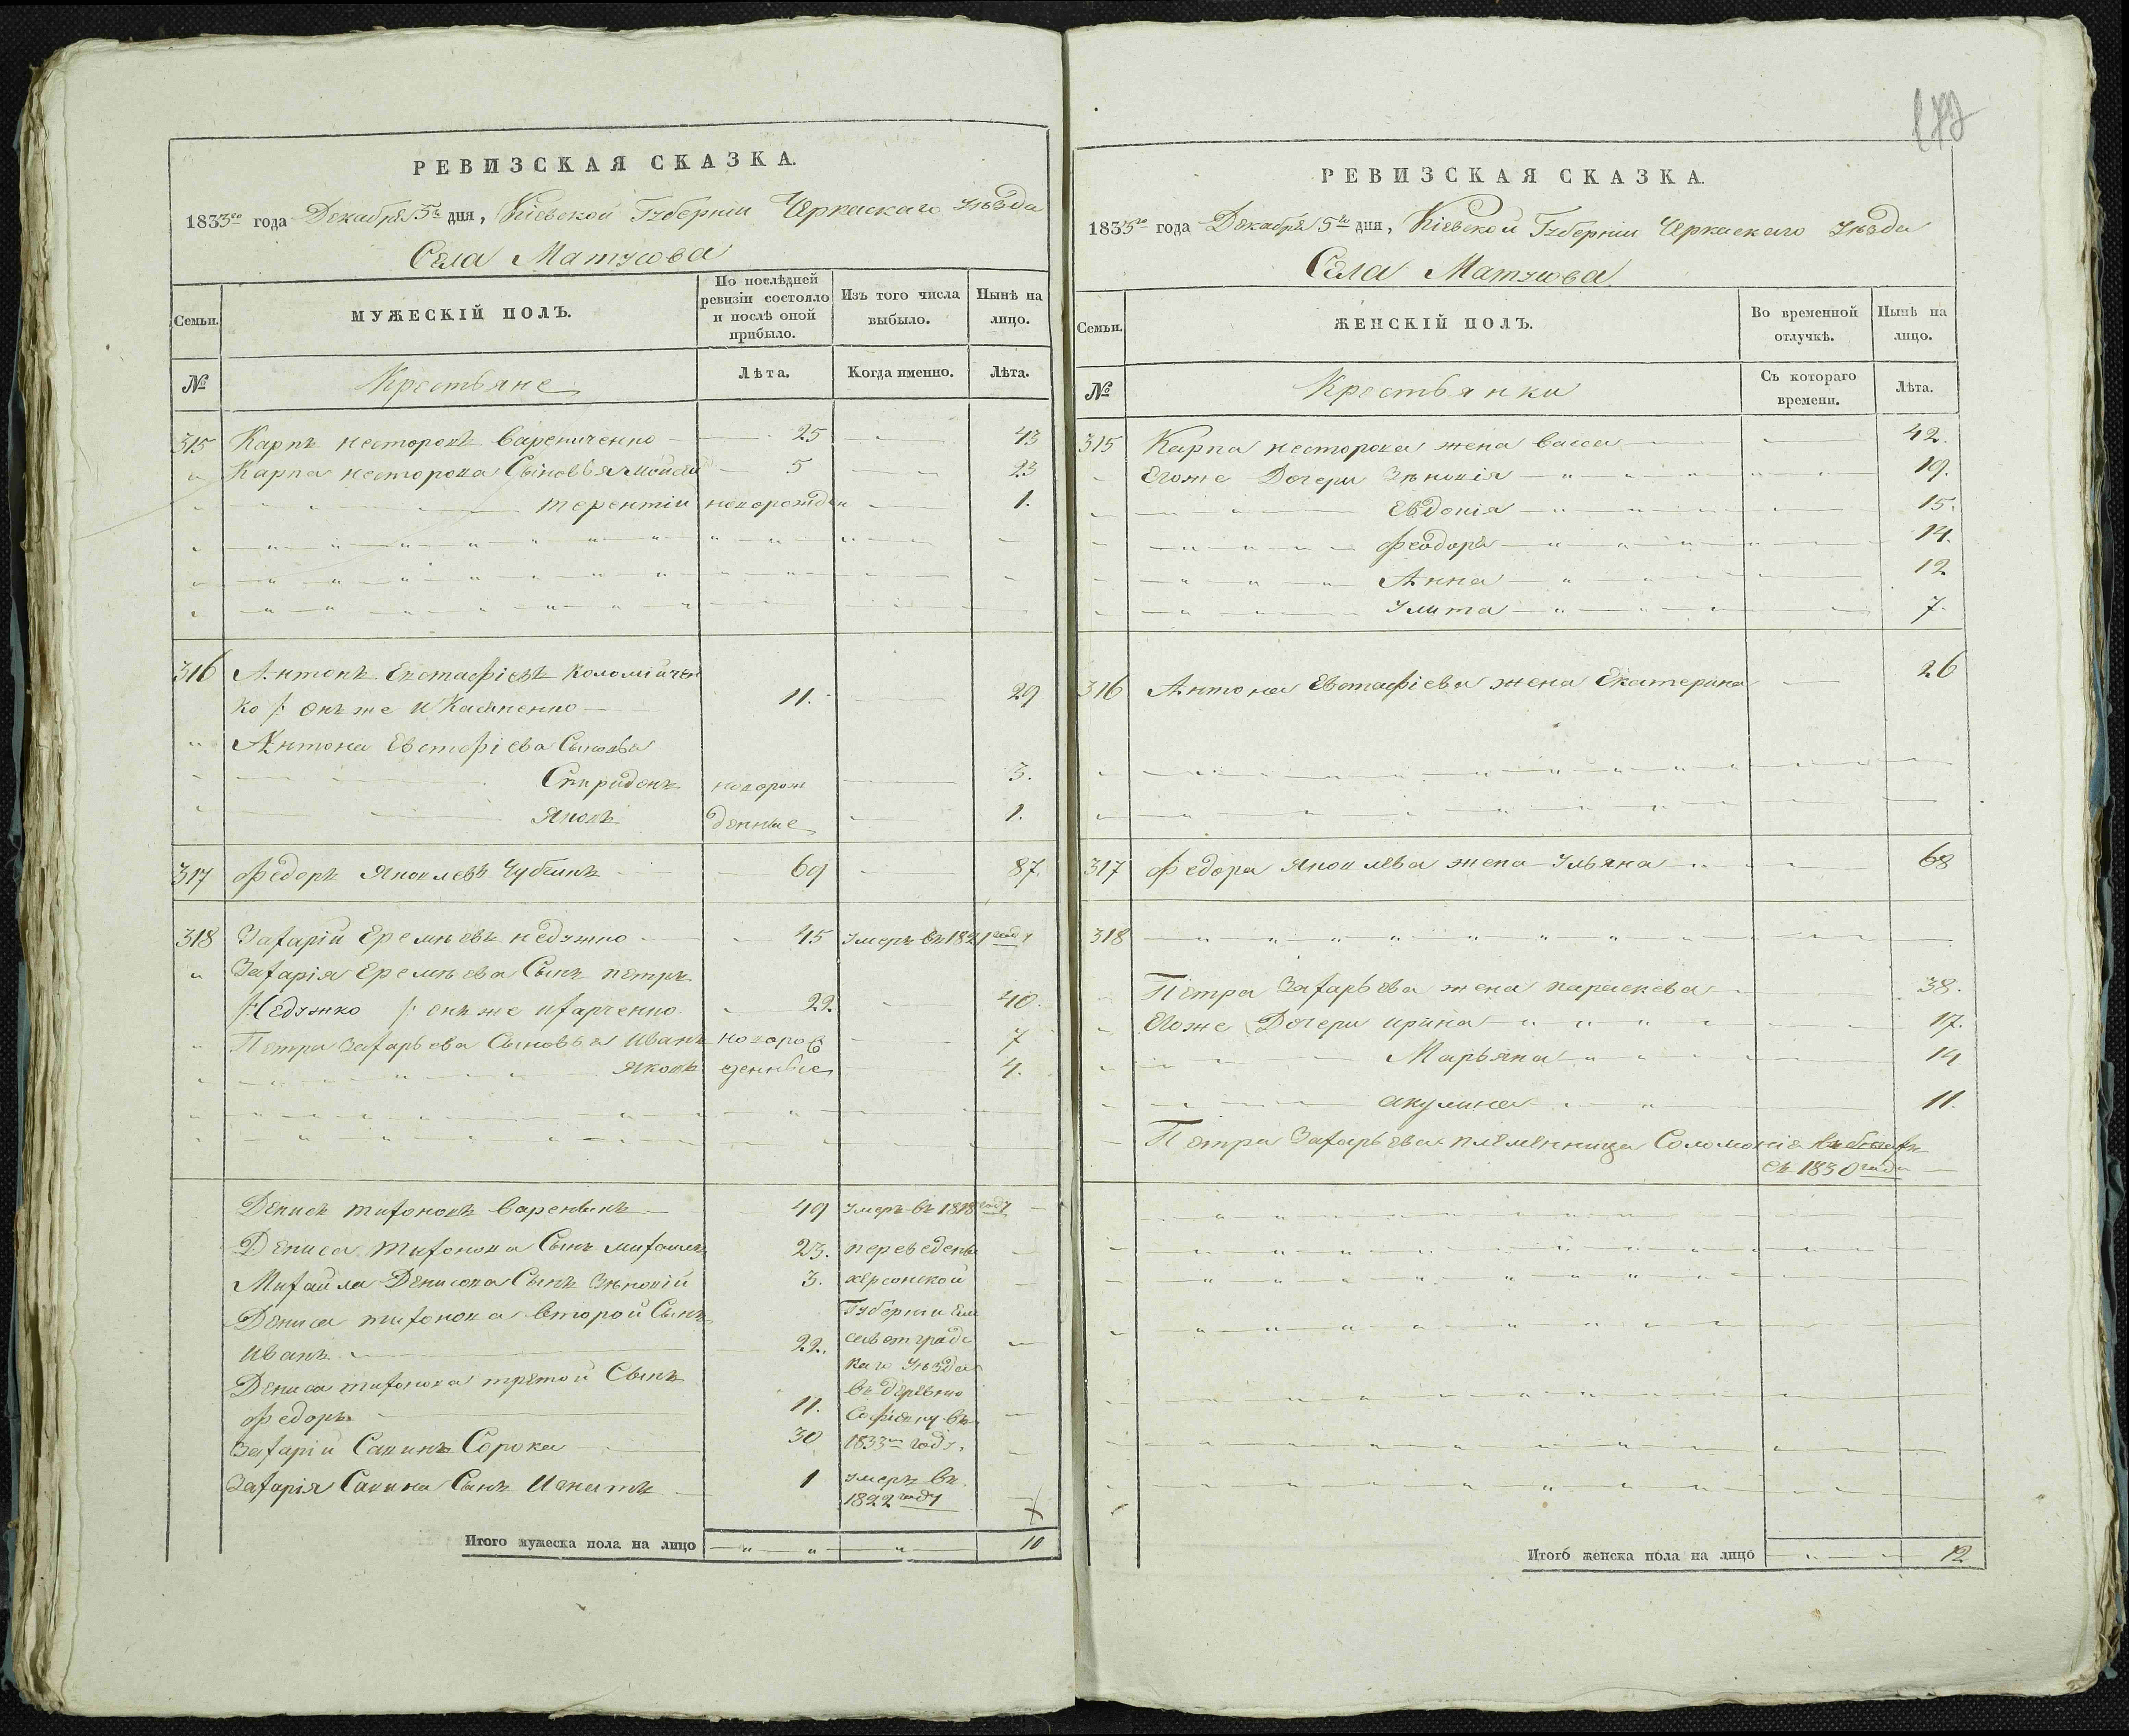 РЕВИЗСКАЯ СКАЗКА.
1833го года Декабря 5го дня, Кіевской Губерніи Черкаскаго Уѣзда
Села Матусова
Семьи.
МУЖЕСКІЙ ПОЛЪ.
По послѣдней ревизіи состояло и послѣ оной прибыло.
Изъ того числа выбыло.
Нынѣ на лицо.
№
Крестьяне
Лѣта.
Когда именно.
Лѣта.
315 Карпъ несторовъ варениченко 25 43
Карпа несторова Сыновья мойсей 5 23
терентіи новорожден 1.
316 Антонъ Евстафіевъ Коломійчен
ко /: онъ же и 11. 29
Антона Евстафіева Сыновья
Спиридонъ новорож 3.
Яковъ денные 1.
317 Федоръ Яковлевъ 69 87.
318 Захарій Еремѣевъ недужко 45 Умеръ въ 1821 году
Захарія Еремѣева Сынъ петръ
Недужко /: онъ же ихарченко 22 40.
Петра Захарьева Сыновья Иванъ новоро 7
Яковъ жденные 4.
Денисъ тихоновъ 49 Умеръ въ 1818 году
Дениса Тихонова Сынъ михаилъ 23. переведены
Михайла Денисова Сынъ Зѣновій 3. херсонской
Дениса тихонова второй Сынъ Губерніи Ели
Иванъ 22. саветградс
каго Уѣзда
Дениса тихонова третой Сынъ въ деревню
Федоръ 11. Софіевку въ
Захарій Савинъ Сорока 30 1833м году.
Захарія Савина Сынъ Игнатъ 1 Умеръ въ
1822 году
Итого мужеска пола на лицо 10
РЕВИЗСКАЯ СКАЗКА.
1833го года Декабря 5го дня, Кіевской Губерніи Черкаскаго Уѣзда
Села Матусова
Семьи.
ЖЕНСКІЙ ПОЛЪ.
Во временной отлучкѣ.
Нынѣ на лицо.
№
Крестьянки
Съ котораго времени.
Лѣта.
315 Карпа несторова жена васса 42.
Егоже Дочери Зѣновія 19.
Евдокія 15.
Феодора 14.
Анна 12
Улита 7.
316 Антона Евстафіева жена Екатерина 26
317 Федора Яковлева жена Ульяна 68
318
Петра Захарьева жена параскева 38.
Егоже Дочери ирина 17.
Марьяна 14
акулина 11.
Петра Захарьева племенница Соломонія въ бегахъ
съ 1830 года
Итого женска пола на лицо 12